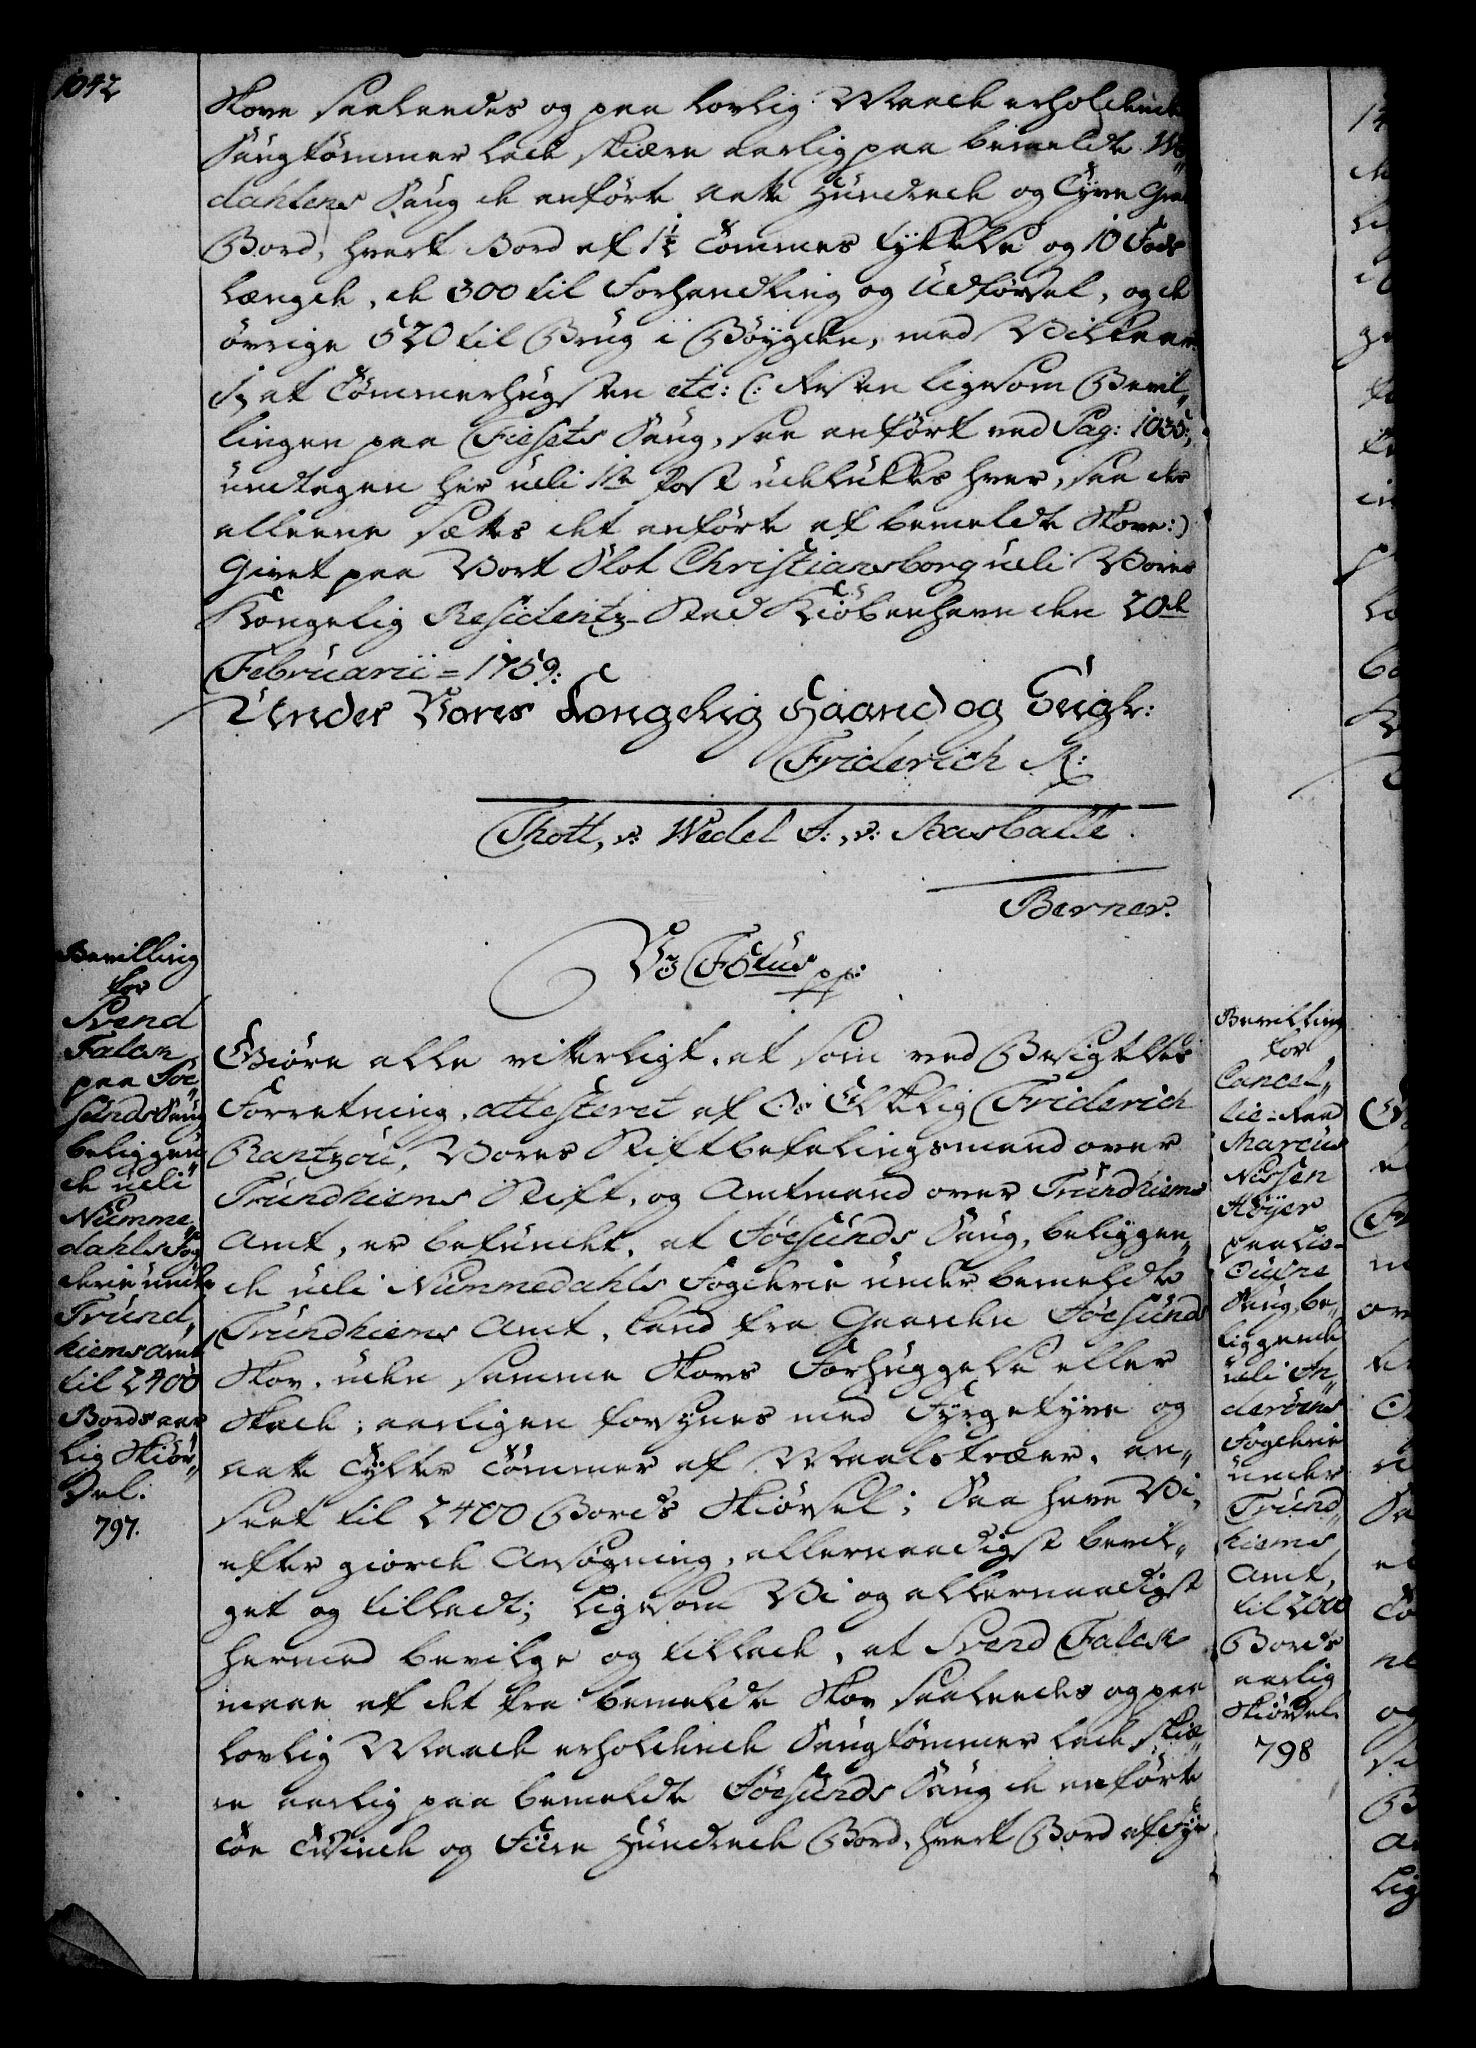 1042
Skove saaledes og paa lovlig Maade erholdende
Saugtømmer lade skiære aarlig paa bemeldte
dahlens Saug de anførte aatte Hundrede og Tyve
Bord, hvert Bord af 1¼ Tommes Tykkelse og 10 Fods
Længde, de 300 til Forhandling og Udførsel, og de
øvrige 520 til Brug i Bøygden, med Vilkaar
1, at Tømmerhugsten etc: (: Resten ligesom Bevil„
lingen paa Fiesets Saug, saa anført ved Pag: 1035,
undtagen her udi 1te Post udelukkes hver, saa der
alleene sættes det anførte af bemeldte Skove:)
Givet paa Vort Slot Christiansborg udi Vores
Kongelig Residentz-Stad Kiøbenhavn den 20de
Februarii = 1759:
Under Vores Kongelig Haand og Seigl:
Friderich R:
Thott, v: Wedel F:, v: Rasballe.
Berner.
Vi F5tus pp:
Bevilling
for
Svend
Falck
paa Foe„
sunds Saug
beliggen„
de udi
Numme„
dahls Fog
derie under
Trund„
hiems Amt
til 2400
Bords aar
lig Skiør„
sel.
797.
Giøre alle vitterligt, at som ved Besigtelses
Forretning, attesteret af Os Elskelig Friderich
Rantzou, Vores Stiftbefalingsmand over
Trundhiems Stift, og Amtmand over Trundhiems
Amt, er befundet, at Foesunds Saug, beliggen„
de udi Nummedahls Fogderie under bemeldte
Trundhiems Amt, kand fra Gaarden Foesunds
Skov, uden samme Skovs Forhuggelse eller
Skade, aarligen forsynes med Fyrgetyve og
aatte Tylter Tømmer af Maalstræer, an„
seet til 2400 Bords Skiørsel; Saa have Vi,
efter giorde Ansøgning, allernaadigst bevil„
get og tilladt; ligesom Vi og allernaadigst
hermed bevilge og tillade, at Svend Falck
maae af det fra bemeldte Skov saaledes og paa
lovlig Maade erholdende Saugtømmer lade skiæ„
re aarlig paa bemeldte Foesunds Saug de anførte
Toe Tusinde og Fiire Hundrede Bord, hvert Bord af
Bevilling
for
Cancel„
lie-Raad
Marcus
Nissen
Høyer
paa
Saug, be„
liggende
udi In„
derøens
Fogderie
under
Trund„
hiems
Amt,
til 2000
Bords
aarlig
Skiørsel.
798